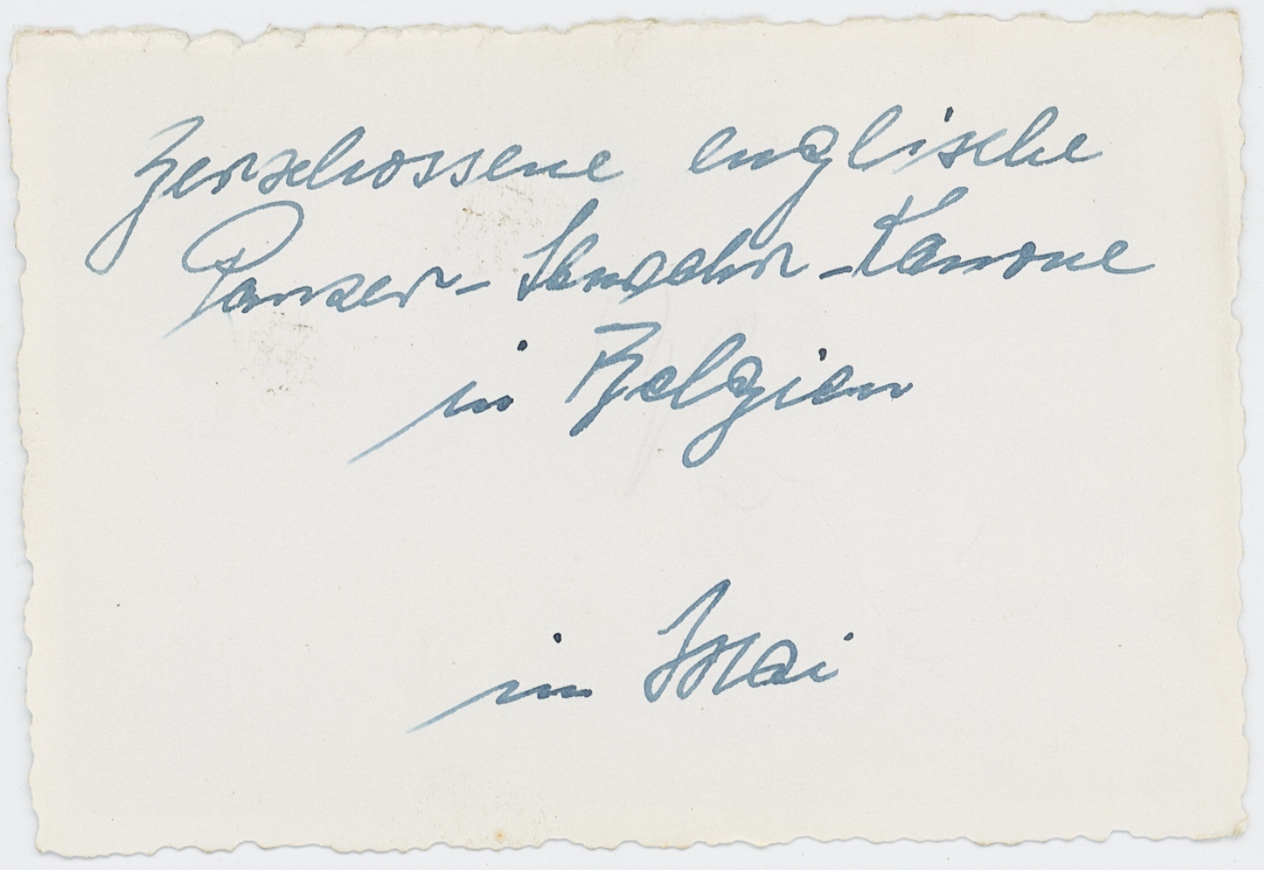 Zerschossene englische
Panzer-Abwehr-Kanone
in Belgien
im Mai